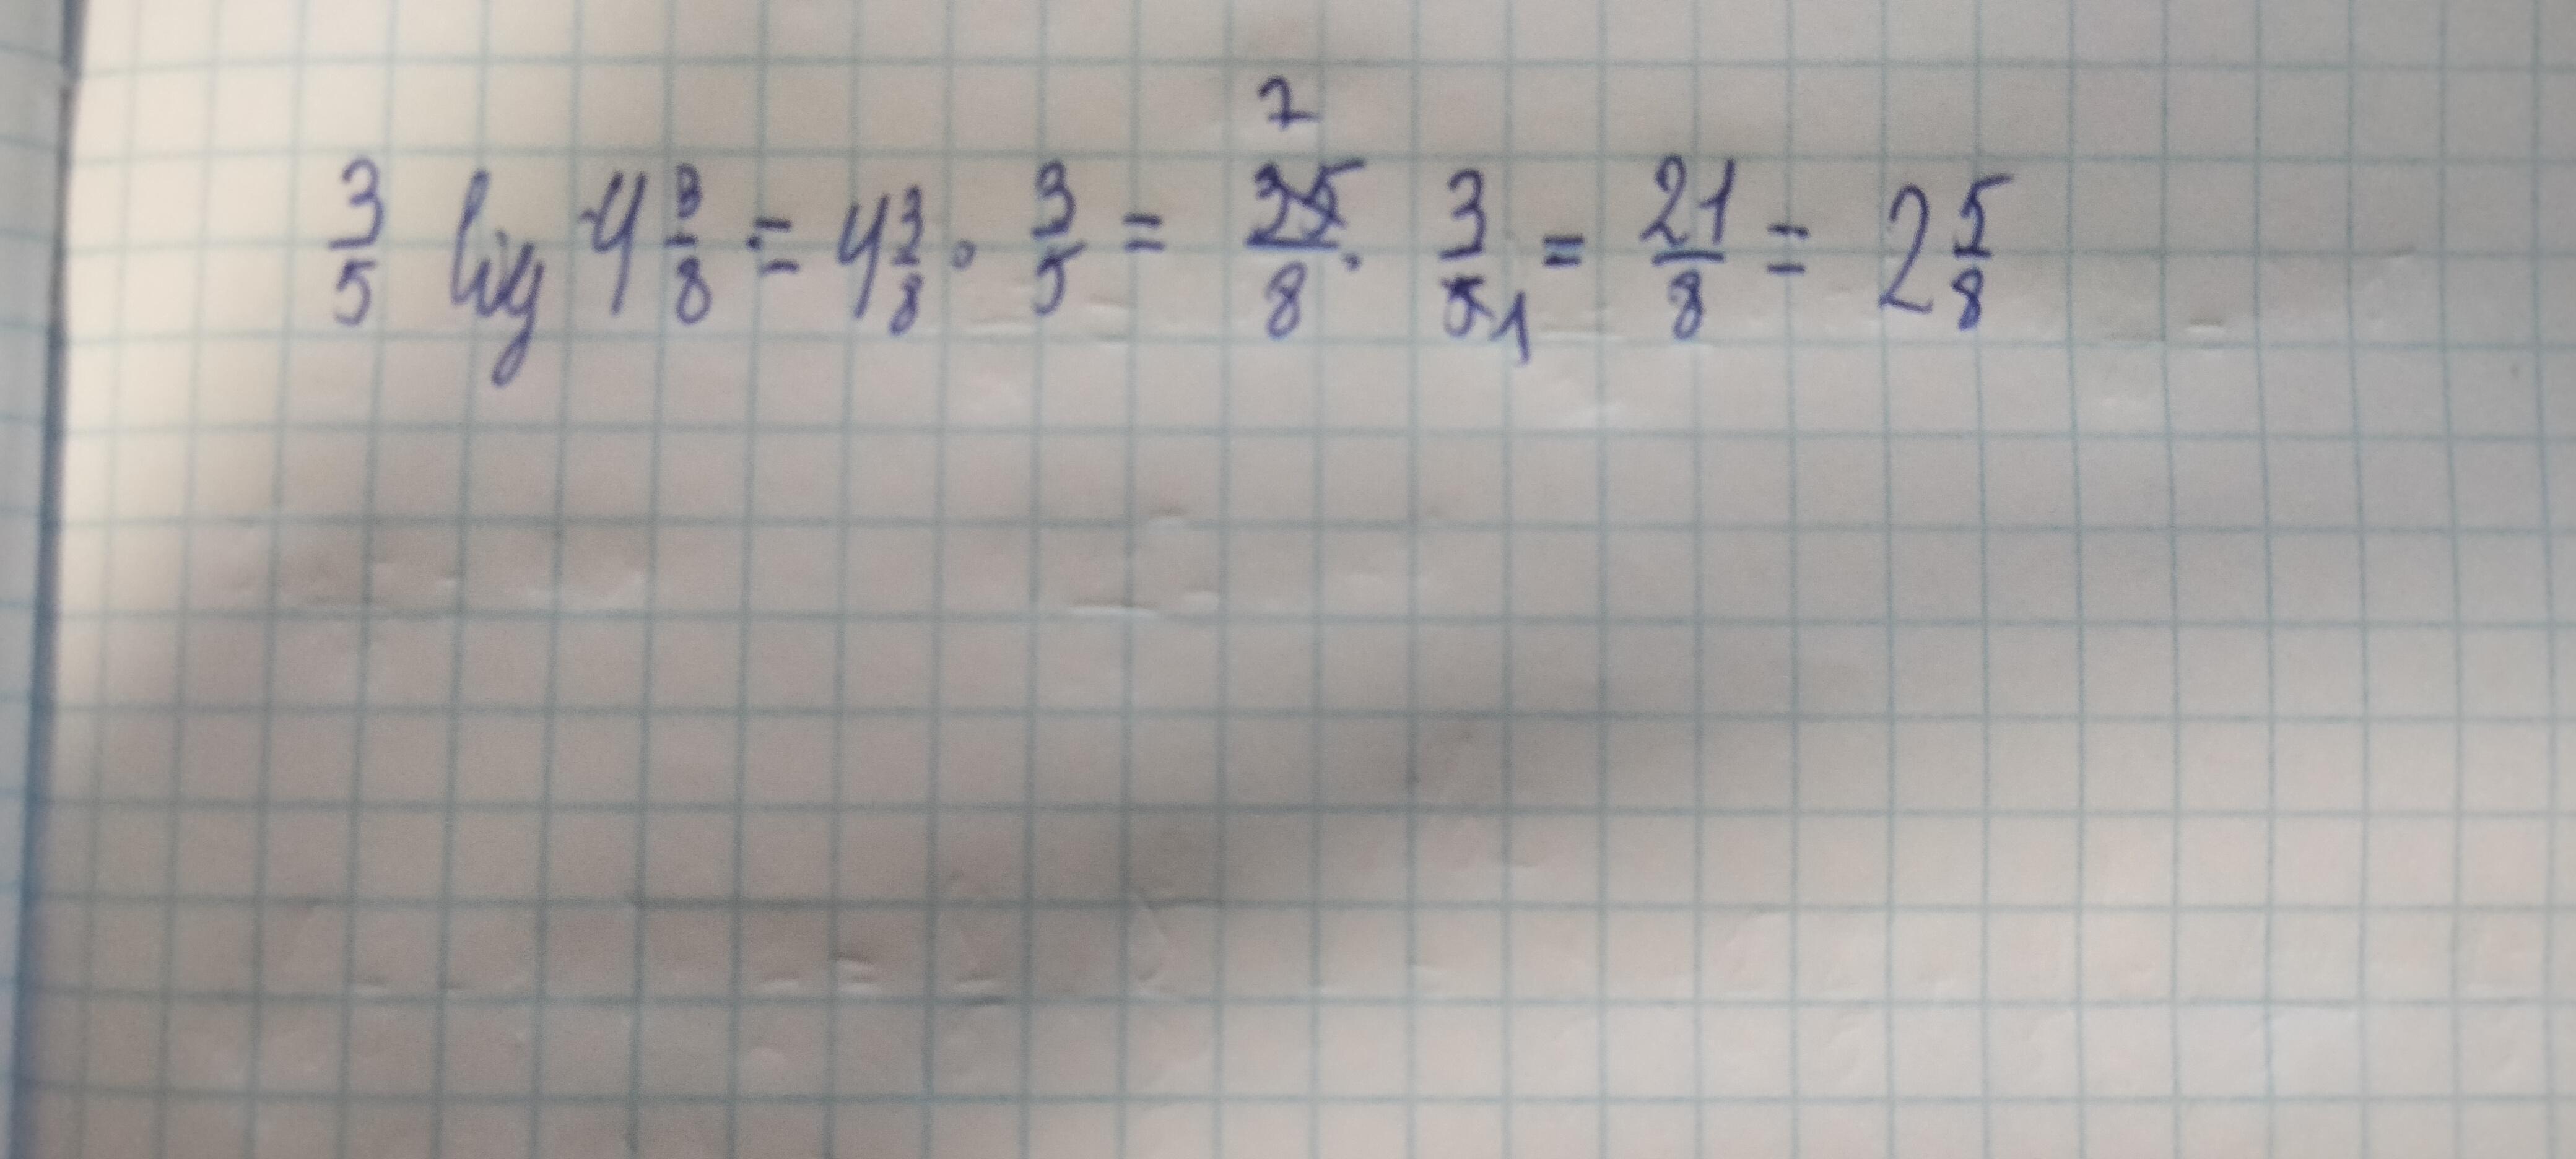 3/5 від 4 3/8 = 4 3/8 · 3/5 = 7 35/8 · 3/5 1 = 21/8 = 2 5/8